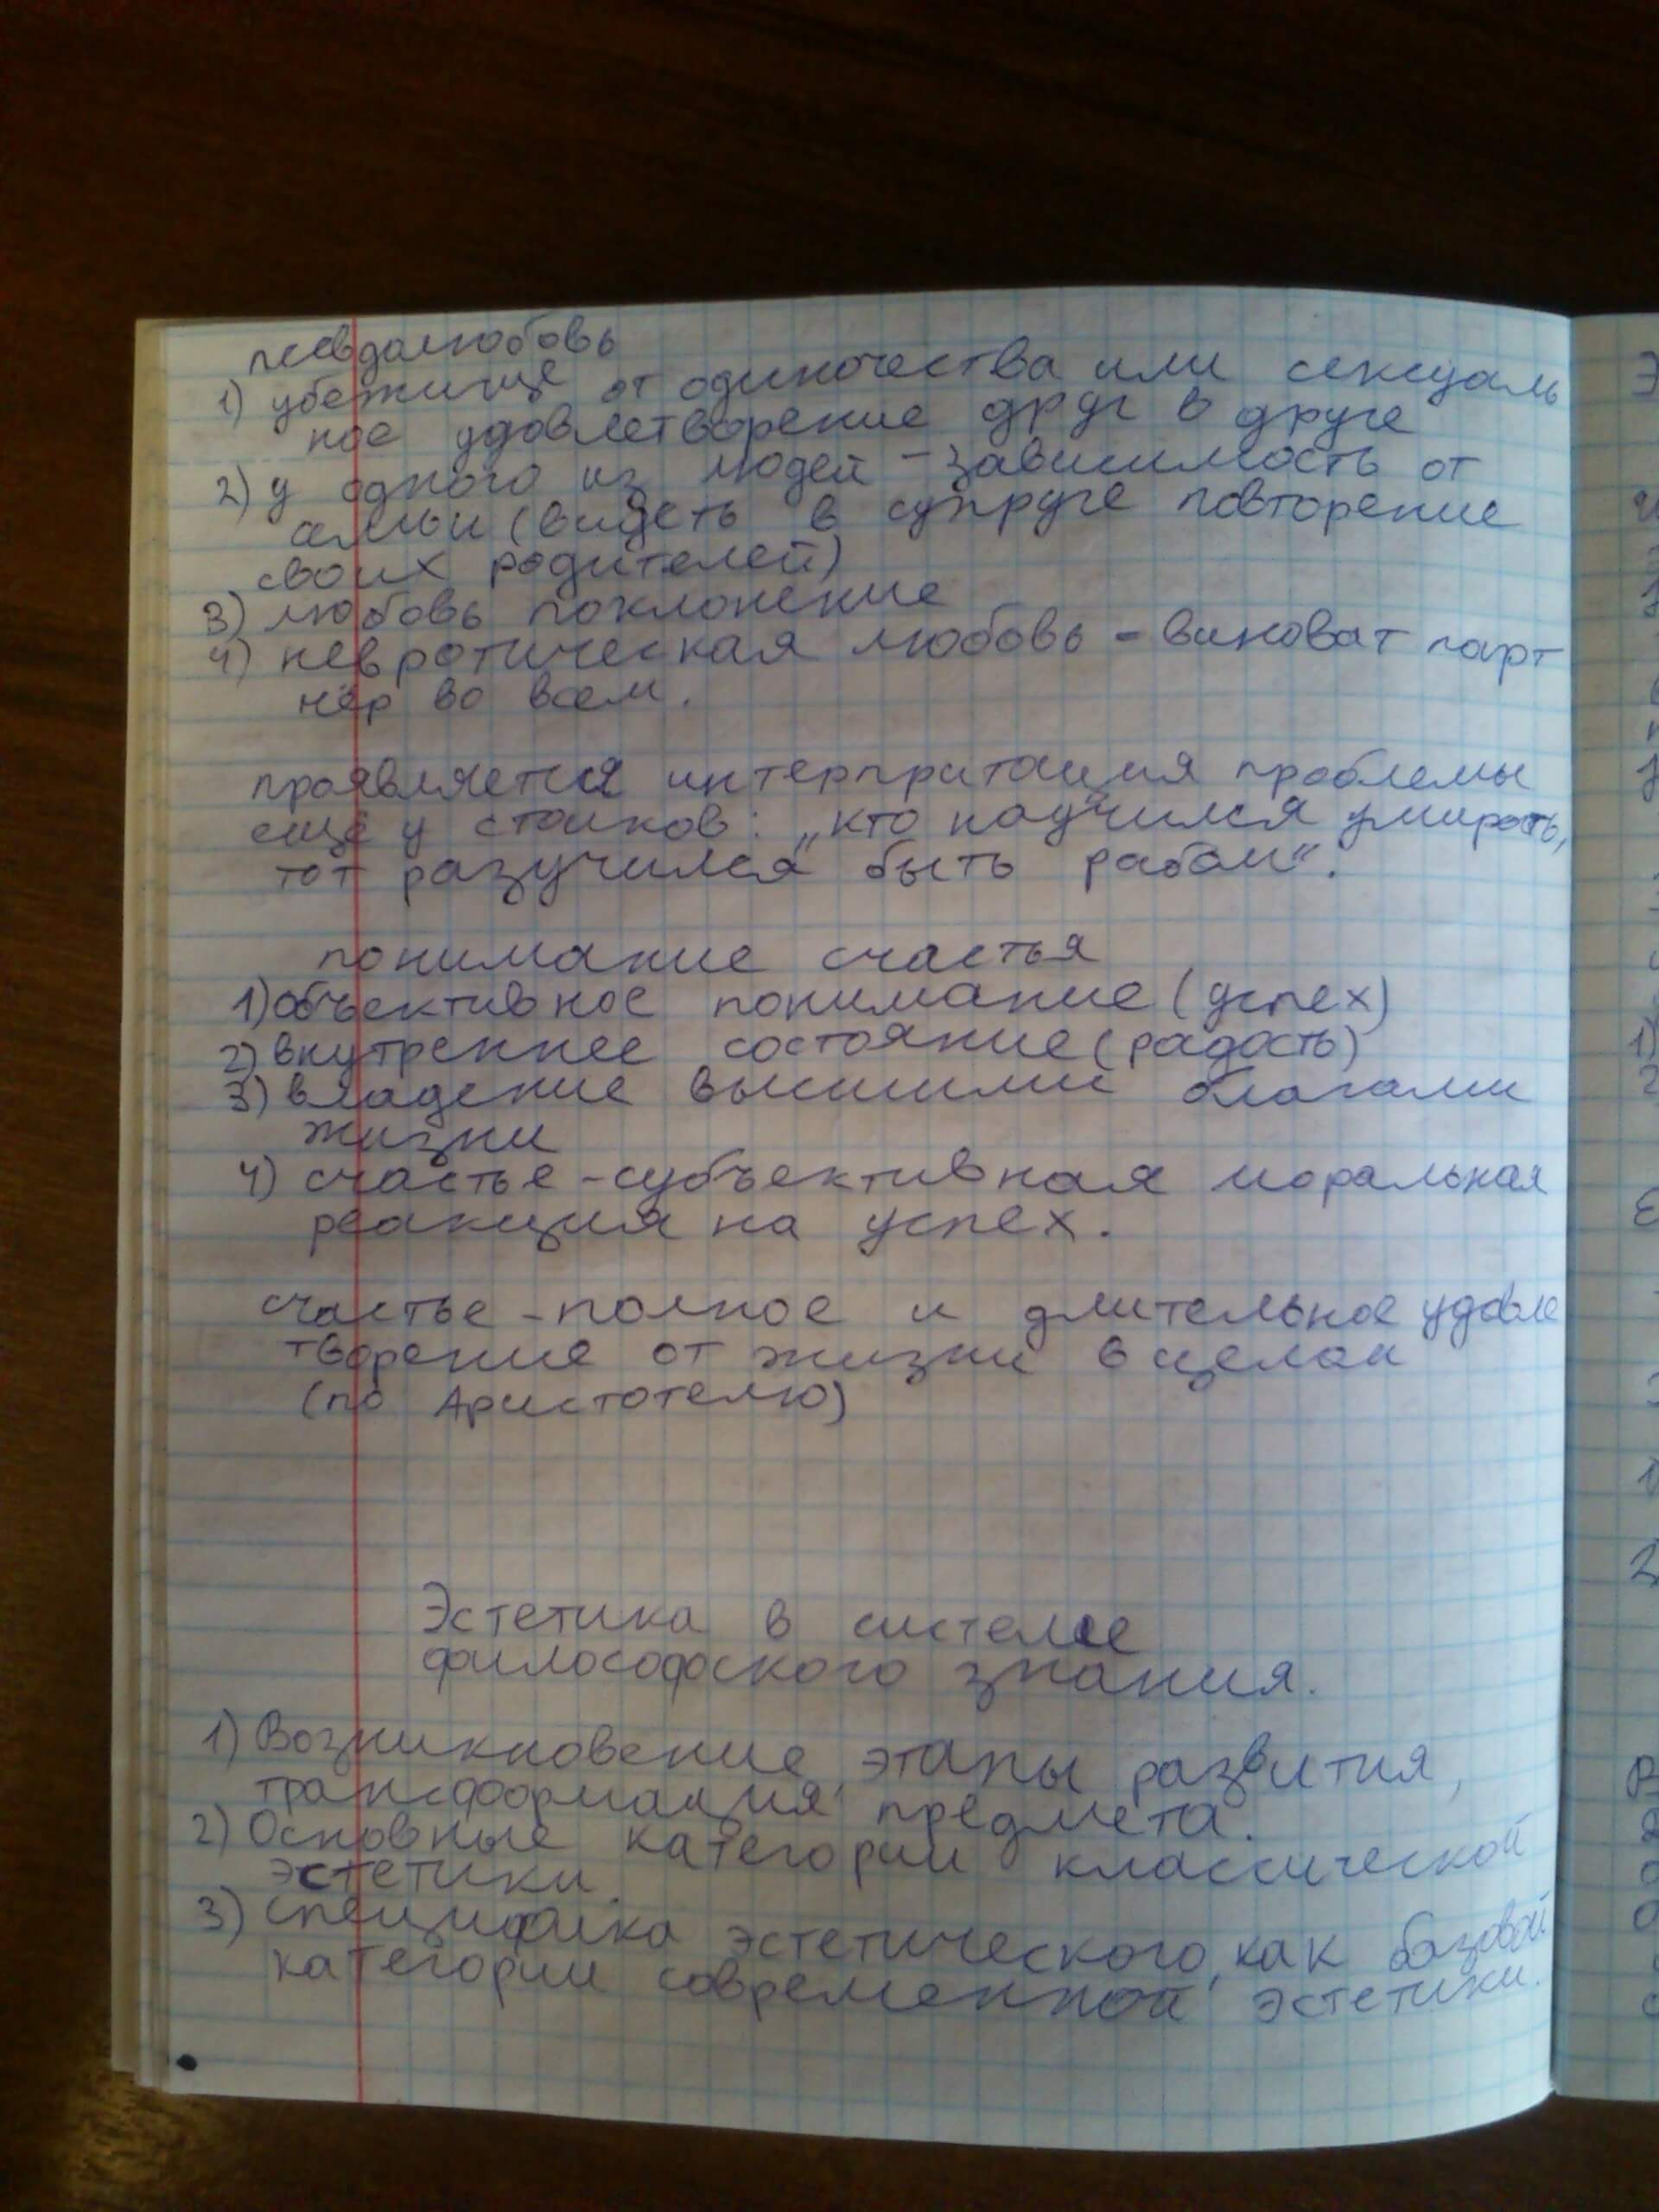 псевдолюбовь
1) убежище от одиночества или сексуаль
ное удовлетворение друг в друге
2) у одного из людей - зависимость от
семьи (видеть в супруге повторение
своих родителей)
3) любовь поклонение
4) невротическая любовь - виноват парт
нёр во всем.
проявляется интерпритация проблемы
ещё у стоиков: „кто научился умирать,
тот разучился быть рабом“.
понимание счастья
1) объективное понимание (успех)
2) внутреннее состояние (радость)
3) владение высшими благами
жизни
4) счастье - субъективная моральная
реакция на успех.
счастье - полное и длительное удовле
творение от жизни в целом
(по Аристотелю)
Эстетика в системе
философского знания.
1) Возникновение, этапы развития,
трансформация предмета.
2) Основные категории классической
эстетики.
3) специфика эстетического, как базовой
категории современной эстетики.